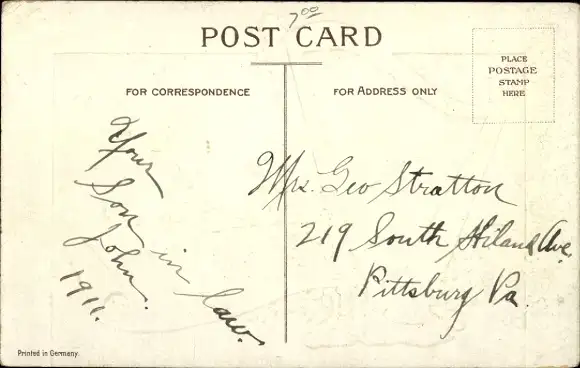 7 00
POST CARD
PLACE
POSTAGE
STAMP
HERE
FOR CORRESPONDENCE
FOR ADDRESS ONLY
Your
Son in law.
John.
1911.
Mrs. Geo Stratton
219 South Hiland Ave.
Pittsburg Pa.
Printed in Germany.